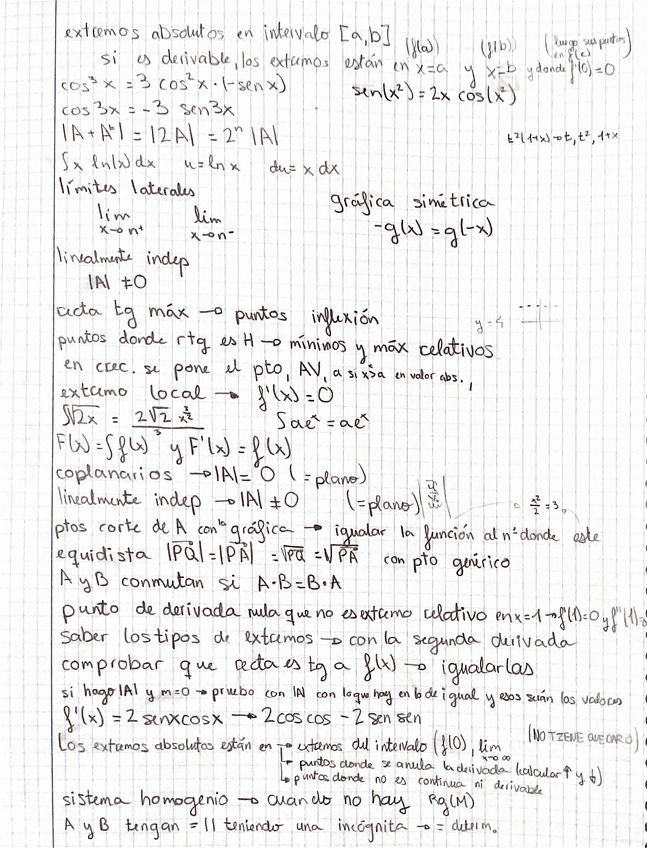 extremos absolutos en intervalo [a,b]
si es derivable, los extremos están en x=a (f(a)) y x=b (f(b)) y donde f'(0)=0 (luego sus puntos en f(c))
cos³x = 3 cos²x · (-sen x)
sen(x²) = 2x cos(x²)
cos 3x = -3 sen3x
|A+A^n| = |2A| = 2^n |A|
t²(1+x) → t, t², 1+x
∫x ln(x) dx u = ln x du = x dx
límites laterales
gráfica simétrica
lim x→n⁺ lim x→n⁻
-g(x) = g(-x)
linealmente indep
|A| ≠ 0
recta tg máx → puntos inflexión
puntos donde rtg es H → mínimos y máx relativos
en crec. se pone el pto, AV, a si x²>a en valor abs.,
extremo local → f'(x) = 0
∫√2x = 2√2 x^(3/2) / 3 ∫ae^x = ae^x
F(x) = ∫f(x) y F'(x) = f(x)
coplanarios → |A| = 0 (=plano)
linealmente indep → |A| ≠ 0 (=plano)
x²/2 = 3
ptos corte de A con la gráfica → igualar la función al nº donde este
equidista |PQ| = |PA| = √PQ = √PA con pto genérico
A y B conmutan si A·B = B·A
punto de derivada nula que no es extremo relativo en x=1 → f'(1)=0 y f''(1)=0
saber los tipos de extremos → con la segunda derivada
comprobar que recta es tg a f(x) → igualarlas
si hago |A| y m=0 → pruebo con |A| con lo que hay en b de igual y esos serán los valores
f'(x) = 2 senx cosx → 2 cos cos - 2 sen sen
Los extremos absolutos están en → extremos del intervalo (f(0), lim x→∞ (NO TIENE QUE DAR 0)
→ puntos donde se anula la derivada (calcular ↑ y ↓)
→ puntos donde no es continua ni derivable
sistema homogenio → cuando no hay Rg(M)
A y B tengan = | | teniendo una incógnita → = determ.